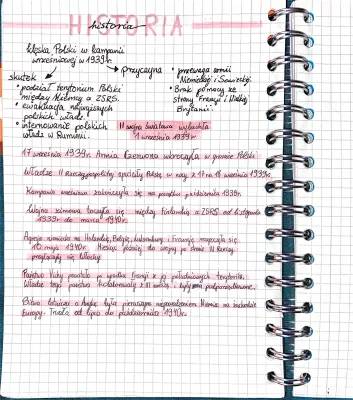 HISTORIA
historia
klęska Polski w kampanii
wrześniowej w 1939r.
skutek
przyczyna
• podział terytorium Polski
między Niemcy a ZSRS.
• ewakuacja najwyższych
polskich władz.
• internowanie polskich
władz w Rumunii.
• przewaga armii
Niemieckiej i Sowieckiej.
• Brak pomocy ze
strony Francji i Wielkiej
Brytanii.
II wojna światowa wybuchła
1 września 1939r
17 września 1939r. Armia Czerwona wkroczyła w granice Polski
Władze II Rzeczypospolitej opuściły Polskę w nocy z 17 na 18 września 1939r.
Kampania wrześniowa zakończyła się na początku października 1939r.
Wojna zimowa toczyła się między Finlandią a ZSRS od listopada
1939r do marca 1940r.
Agresja niemiecka na Holandię, Belgię, Luksemburg i Francję rozpoczęła się
10 maja 1940r. Miesiąc później do wojny po stronie III Rzeszy
przyłączyły się Włochy
Państwo Vichy powstało po upadku Francji z jej południowych terytoriów.
Władze tego państwa kolaborowały z III Rzeszą i były jej podporządkowane.
Bitwa lotnicza o Anglię była pierwszym niepowodzeniem Niemiec na zachodzie
Europy. Trwała od lipca do października 1940r.